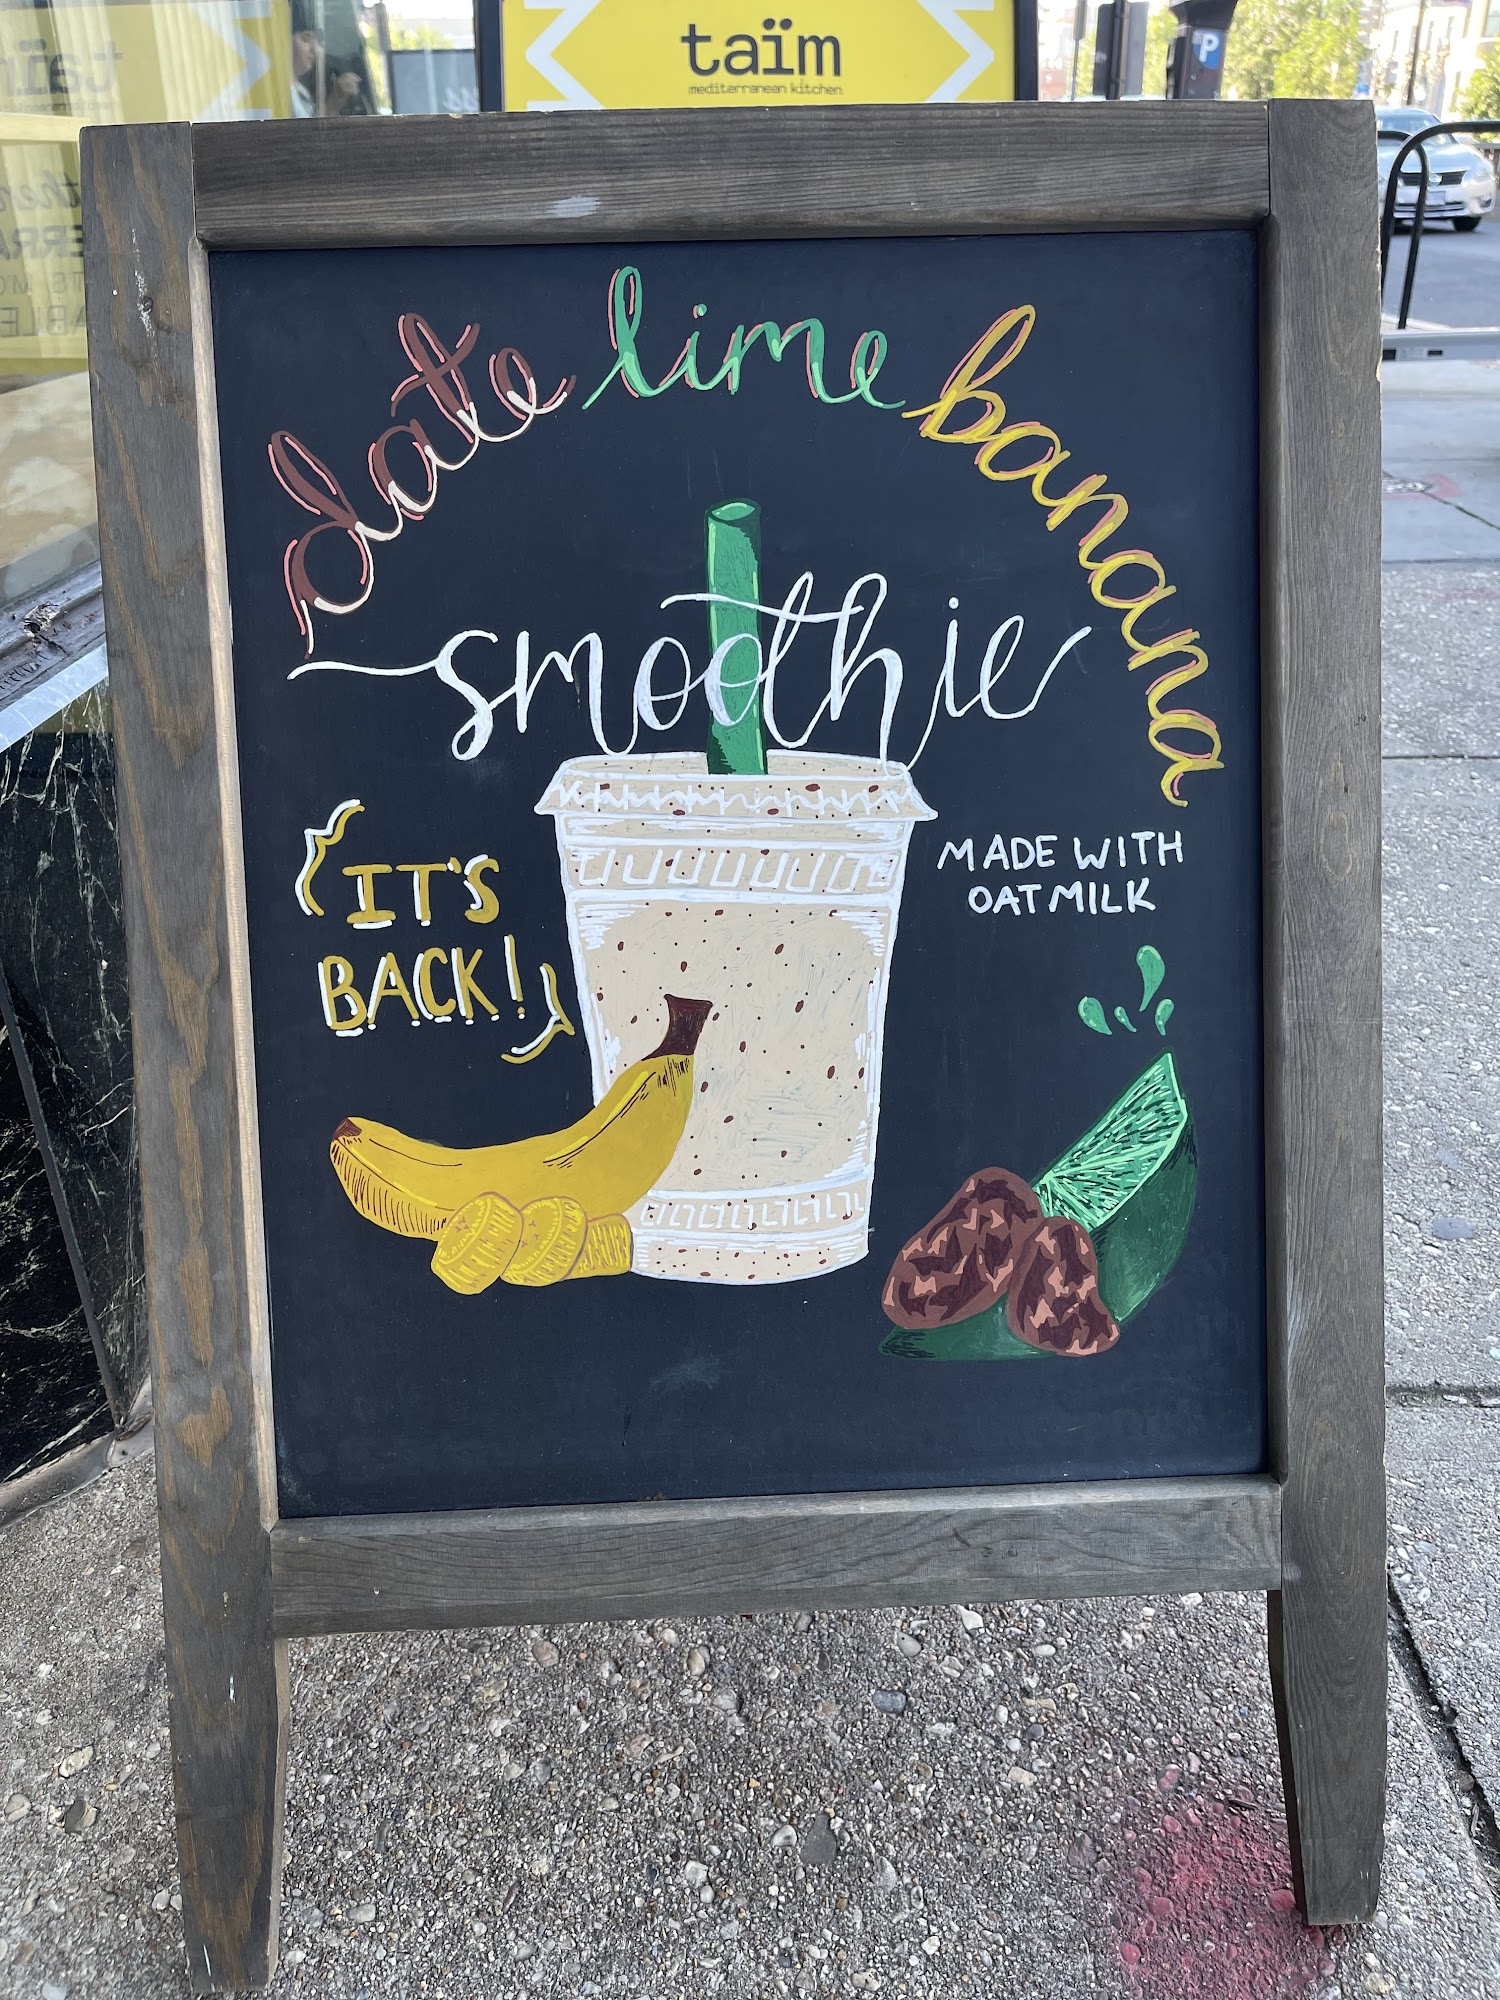 taïm
mediterranean kitchen
P
date lime banana
smoothie
IT'S
BACK!
MADE WITH
OATMILK